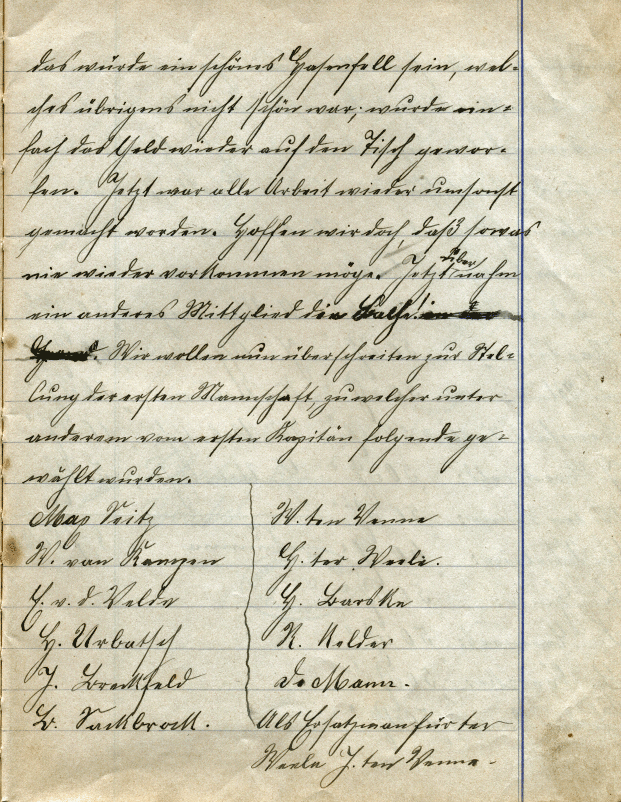 das würde ein schönes Hasenfell sein, wel-
ches übrigens nicht schön war; wurde ein-
fach das Geld wieder auf den Tisch gewor-
fen. Jetzt war alle Arbeit wieder umsonst
gemacht worden. Hoffen wir doch, daß sowas
nie wieder vorkommen möge. Jetzt über nahm
ein anderes Mittglied die
Wir wollen nun überschreiten zur Stel-
lung der ersten Mannschaft, zu welcher unter
anderem vom ersten Kapitän folgende ge-
wählt wurden.
Max Seitz
W. van Kampen
E. v. d. Velde
H. Urbatsch
J. Breckfeld
B. Sackbrock.
W. ten Venne
H. ter Weele.
H. Barske
R. Kelder
de Mann.
Als Ersatzman für ter
Weele J. ten Venne.